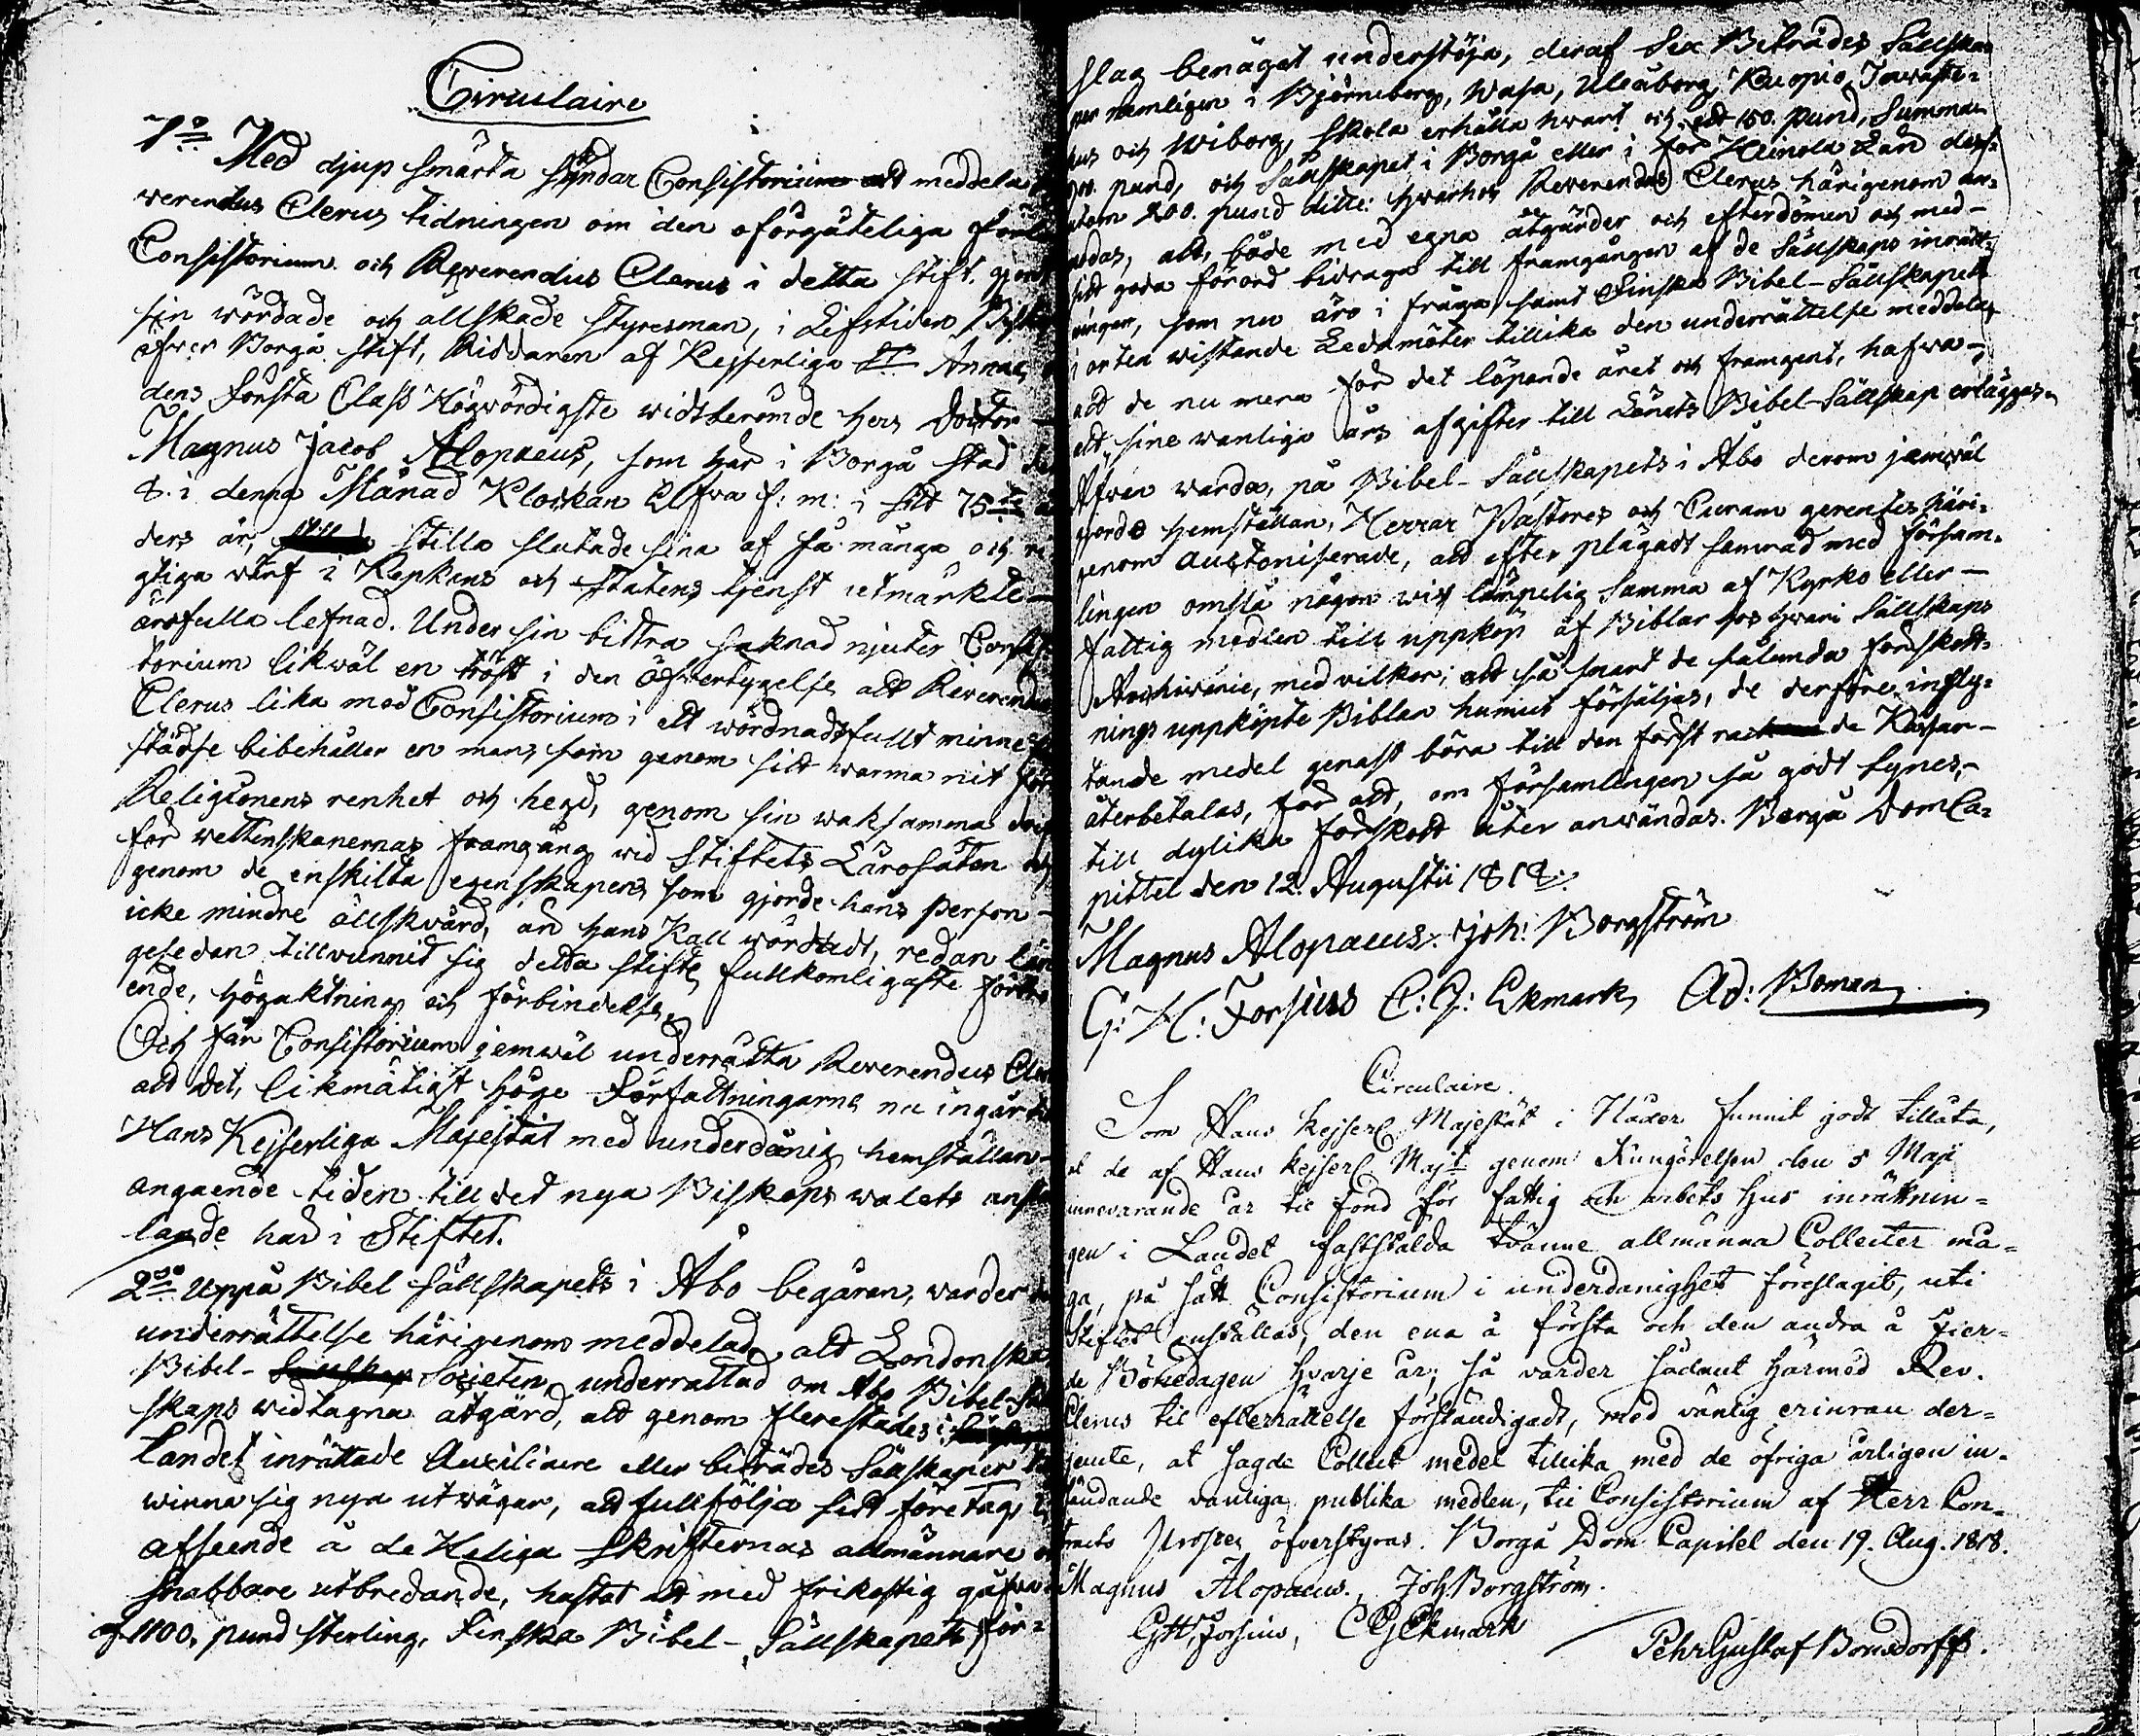 Circulaire
1o Med djup smärta skyndar Consistorium att meddela
verendus Clerus tidningen om den oförgäteliga förlu
Consistorium och Reverendus Clerus i detta stift, gjordt
sin wördade och älskade styresman, i Lifstiden Bisk
öfwer Borgå stift, Riddaren af Kejserliga St Annæ
dens Första Class Högwördigste widtberömde Herr Doctor
Magnus Jacob Alopaeus, som här i Borgå stad
8. i denna Månad Klockan Elfva f: m: i sitt 75te
ders år, stilla slutade sina af så många och
gtiga värf i Kyrkans och Statens tjenst utmärkte
ärofulla lefnad. Under sin bittra saknad njuter Consis
torium likwäl en tröst i den öfwertygelse att Reverendus
Clerus lika med Consistorium i ett wördnadsfullt minne
städse bibehåller en man, som genom sitt warma nit för
Religionens renhet och hegd, genom sin waksamma
för wettenskapernas framgång wid Stiftets Lärosäten
genom de enskilta egenskaper, som gjorde hans person
icke mindre älskvärd, än hans Kall wördadt, redan län
gesedan tillvunnit sig detta stifts fullkomligaste förtro
ende, högaktning och förbindelse.
Och får Consistorium jemwäl underrätta Reverendus Cler
att det, likmätigt höge Författningarne nu ingår till
Hans Kejserliga Majestät med underdånig hemställan
angående tiden till det nya Biskops walets anstä
lande här i Stiftet.
2do Uppå Bibel sällskapets i Åbo begäran, varder
underrättelse härigenom meddelad, att Londonska
Bibel- Societen, underrättad om Åbo Bibel-Säl
skaps widtagna åtgärd, att genom flerestädes i
Landet inrättade Auxiliaire eller biträdes Sällskaper
winna sig nya utvägar, att fullfölja sitt företag
afseende å de Heliga Skrifternas allmännare
snabbare utbredande, hastat att med frikostig gåfwa
af 1100. pund sterling, Finska Bibel-Sällskapets för=
slag benäget understöja, deraf Sex Biträdes Sällska
per nemligen i Björneborg, Wasa, Uleåborg, Kuopio, Tawaste=
hus och Wiborg, skola erhålla hwart och ett 150. pund, Summan
900. pund, och Sällskapet i Borgå eller i för Heinola Län dess=
utom 200. pund ditto: hwarhos Reverendus Clerus härigenom an=
modas, att, både med egna åtgärder och efterdömen och med-
sitt goda förord bidraga till framgången af de Sällskaps inrätt=
ningar, som nu äro i fråga, samt Finska Bibel-Sällskapets
i orten wistande Ledamöter tillika den underrättelse meddelas,
att de nu mera för det löpande året och framgent, hafwa-
att sine wanliga års afgifter till Länets Bibel-Sällskap erläggas.
Äfven warda, på Bibel-Sällskapets i Åbo derom jemwäl
gjorde hemställan, Herrar Pastores och Curam gerentes häri=
genom auctoriserade, att efter plägadt samråd med försam=
lingen omslå någon viss lämpelig Summa af Kyrko eller-
fattig medlen till uppköp af Biblar hos hwari Sällskaps
Archivarie, med vilkor, att så snart de sålunda förskott=
nings uppköpte Biblar hunnit försäljas, de derföre infly=
tande medel genast böra till den först de Kassan-
återbetalas, för att, om församlingen så godt synes,-
till dylika förskott åter anwändas. Borgå DomCa=
pittel den 12. Augustii 1818.
Magnus Alopaeus. Joh: Borgström
G: H: Forsius C: G: Ekmark Ad: Boman
Circulaire.
Som Hans Kejserl Majestät i Nåder funnit godt tillåta,
at de af Hans Kejserl Majt genom Kungörelsen den 5 Maji
innevarande år til fond för fattig och arbets hus inrättnin=
gen i Landet fastställda tvänne allmänna Collecter må=
ga, på sätt Consistorium i underdånighet föreslagit, uti
Stiftet anställas, den ena å första och den andra å Fjer=
de Bönedagen hvarje år; så varder sådant härmed Rev.
Clerus til efterrättelse förständigadt, med vänlig erinran der=
jemte, at sagde Collect medel tillika med de öfriga årligen in-
sändande vanliga publika medlen, til Consistorium af Herr Con=
tracts Prosten öfverstyras. Borgå Dom Capitel den 19. Aug. 1818.
Magnus Alopaeus. Joh Borgström.
GH Forsius, C G Ekmark
Pehr Gustaf Bonsdorff.